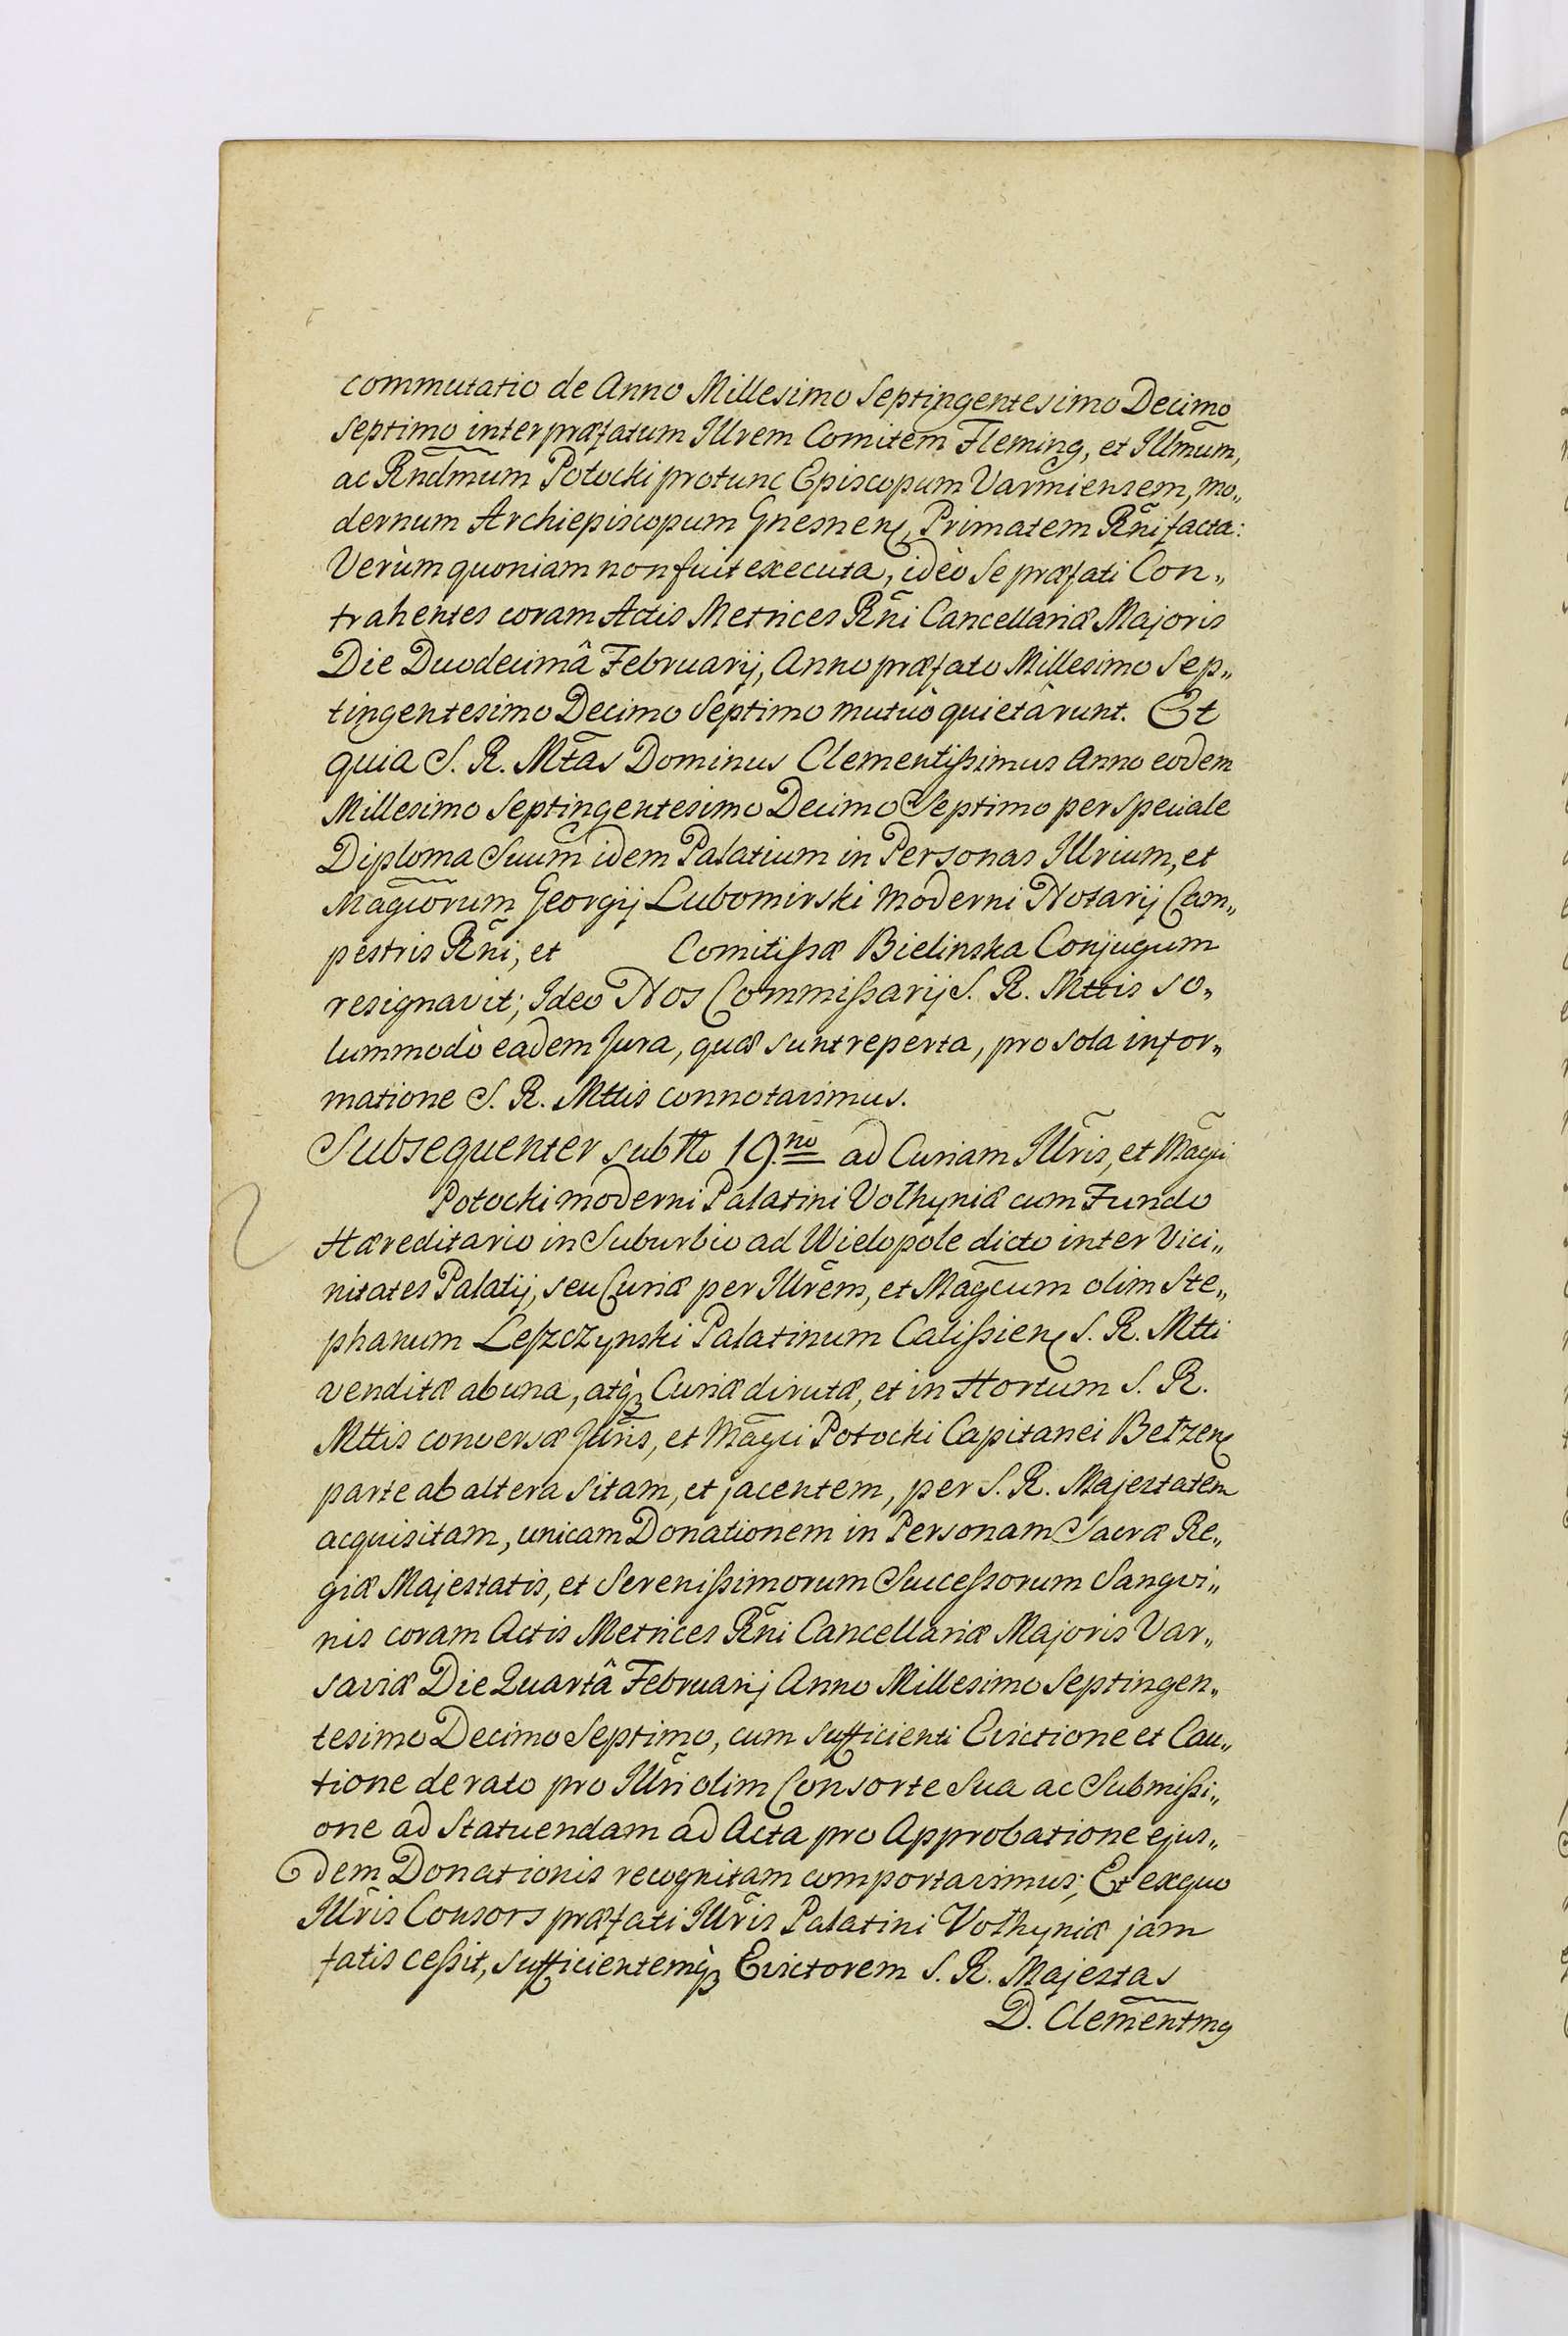 commutatio de Anno Millesimo Septingentesimo Decimo
Septimo inter præfatum Illrem Comitem Fleming, et Illmum,
ac Rndmum Potocki protunc Episcopum Varmiensem, mo„
dernum Archiepiscopum Gnesnen, Primatem Rni facta:
Verùm quoniam non fuit executa, ideò se præfati Con„
trahentes coram Actis Metrices Rni Cancellariæ Majoris
Die Duodecimâ Februarij, Anno præfato Millesimo Sep„
tingentesimo Decimo Septimo mutuò quietârunt. Et
quia S. R. Mtas Dominus Clementißimus Anno eodem
Millesimo Septingentesimo Decimo Septimo per speciale
Diploma Suum idem Palatium in Personas Illrium, et
Magcorum Georgij Lubomirski moderni Notarij Cam„
pestris Rni, et Comitißæ Bielinska Conjugum
resignavit; Ideo Nos Commißarij S. R. Mttis so„
lummodò eadem Jura, quæ sunt reperta, pro sola infor„
matione S. R. Mttis connotavimus.
Subsequenter sub No 19.no ad Curiam Illris, et Magci
Potocki moderni Palatini Volhyniæ cum Fundo
Hæreditario in Suburbio ad Wielopole dicto inter Vici„
nitates Palatij, seu Curiæ per Illrem, et Magcum olim Ste„
phanum Leßczynski Palatinum Calißien S. R. Mtti
venditæ ab una, atq3 Curiæ dirutæ, et in Hortum S. R.
Mttis conversæ Illris, et Magci Potocki Capitanei Betzen
parte ab altera sitam, et jacentem, per S. R. Majestatem
acquisitam, unicam Donationem in Personam Sacræ Re„
giæ Majestatis, et Serenißimorum Succeßorum Sangvi„
nis coram Actis Metrices Rni Cancellariæ Majoris Var„
saviæ Die Quartâ Februarij Anno Millesimo Septingen„
tesimo Decimo Septimo, cum sufficienti Evictione et Cau„
tione de rato pro Illri olim Consorte Sua ac Submißi„
one ad Statuendam ad Acta pro Approbatione ejus„
dem Donationis recognitam comportavimus; Et ex quo
Illris Consors præfati Illris Palatini Volhyniæ jam
fatis ceßit, sufficientemq3 Evictorem S. R. Majestas
D. Clementmg